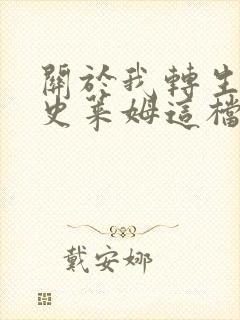 關於我轉生
史萊姆這檔
戴安娜